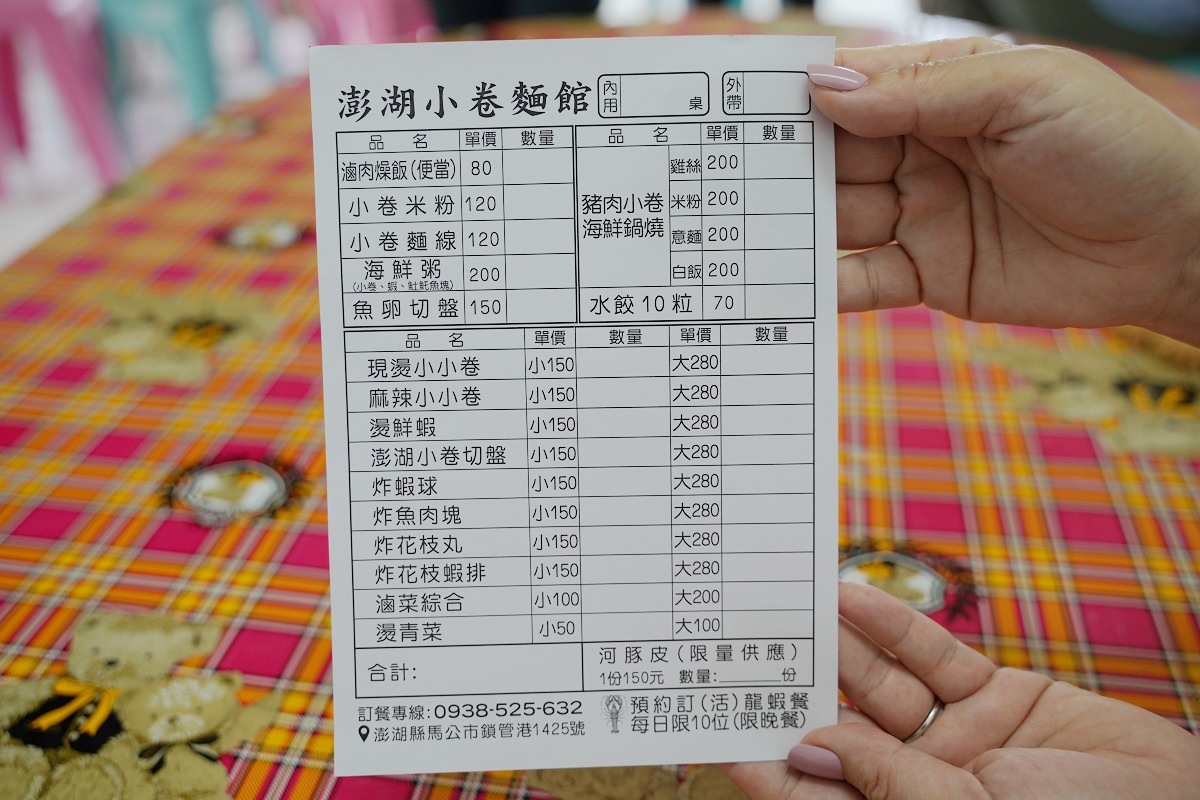 澎湖小卷麵館 內用 桌 外帶
品名 單價 數量
滷肉燥飯(便當) 80
小卷米粉 120
小卷麵線 120
海鮮粥 200
(小卷、蝦、𩵚魠魚塊)
魚卵切盤 150
品名 單價 數量
豬肉小卷
海鮮鍋燒
雞絲 200
米粉 200
意麵 200
白飯 200
水餃10粒 70
品名 單價 數量 單價 數量
現燙小小卷 小150 大280
麻辣小小卷 小150 大280
燙鮮蝦 小150 大280
澎湖小卷切盤 小150 大280
炸蝦球 小150 大280
炸魚肉塊 小150 大280
炸花枝丸 小150 大280
炸花枝蝦排 小150 大280
滷菜綜合 小100 大200
燙青菜 小50 大100
合計:
河豚皮(限量供應)
1份150元 數量:______份
訂餐專線:0938-525-632
澎湖縣馬公市鎖管港1425號
預約訂(活)龍蝦餐
每日限10位(限晚餐)